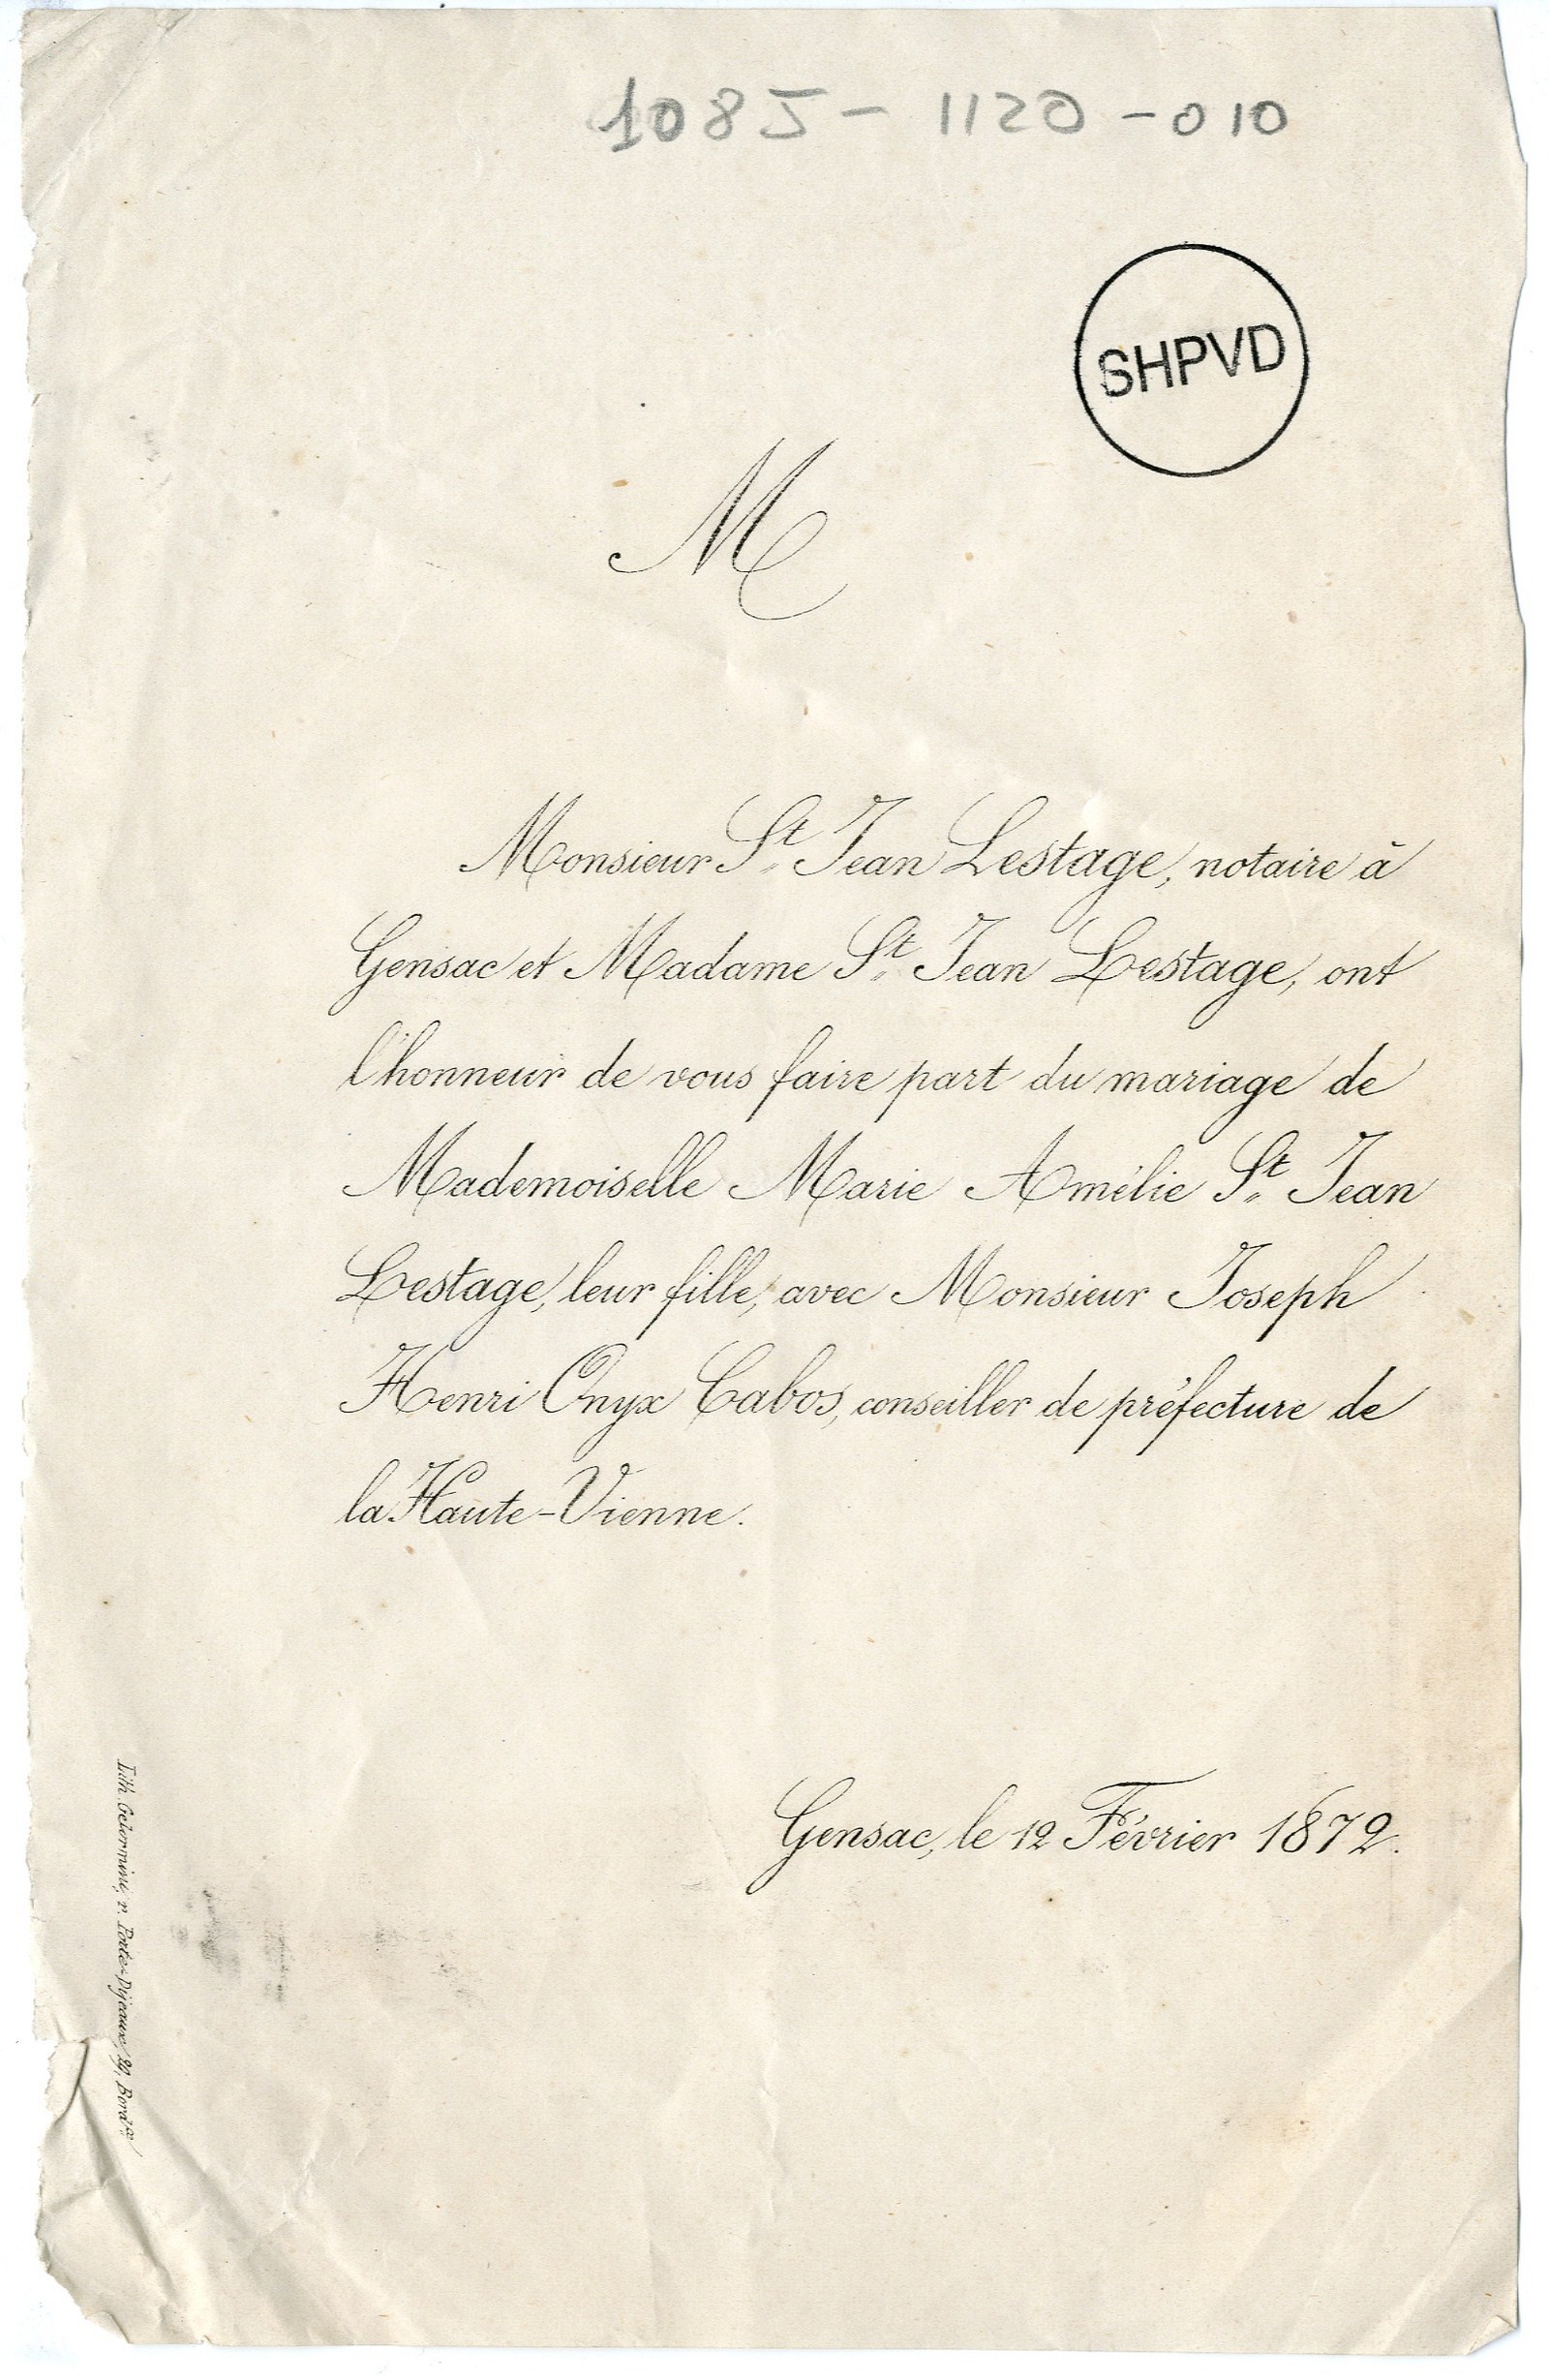 108J - 1120 - 010
SHPVD
M
Monsieur St Jean Lestage, notaire à
Gensac et Madame St Jean Lestage, ont
l'honneur de vous faire part du mariage de
Mademoiselle Marie Amélie St Jean
Lestage, leur fille, avec Monsieur Joseph
Henri Onyx Cabos, conseiller de préfecture de
la Haute-Vienne.
Gensac, le 12 Février 1872.
Lith. Gélormini, r. Porte-Dijeaux, Bordx